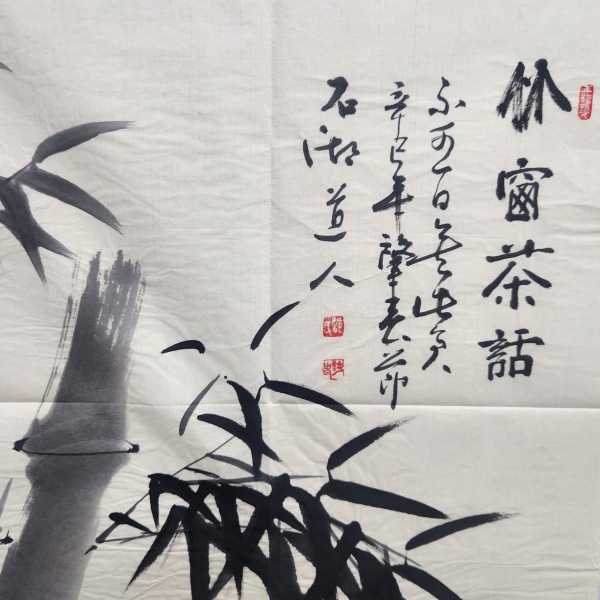 竹窗茶話
不可一日無此君
辛巳年肇春節
石湖道人